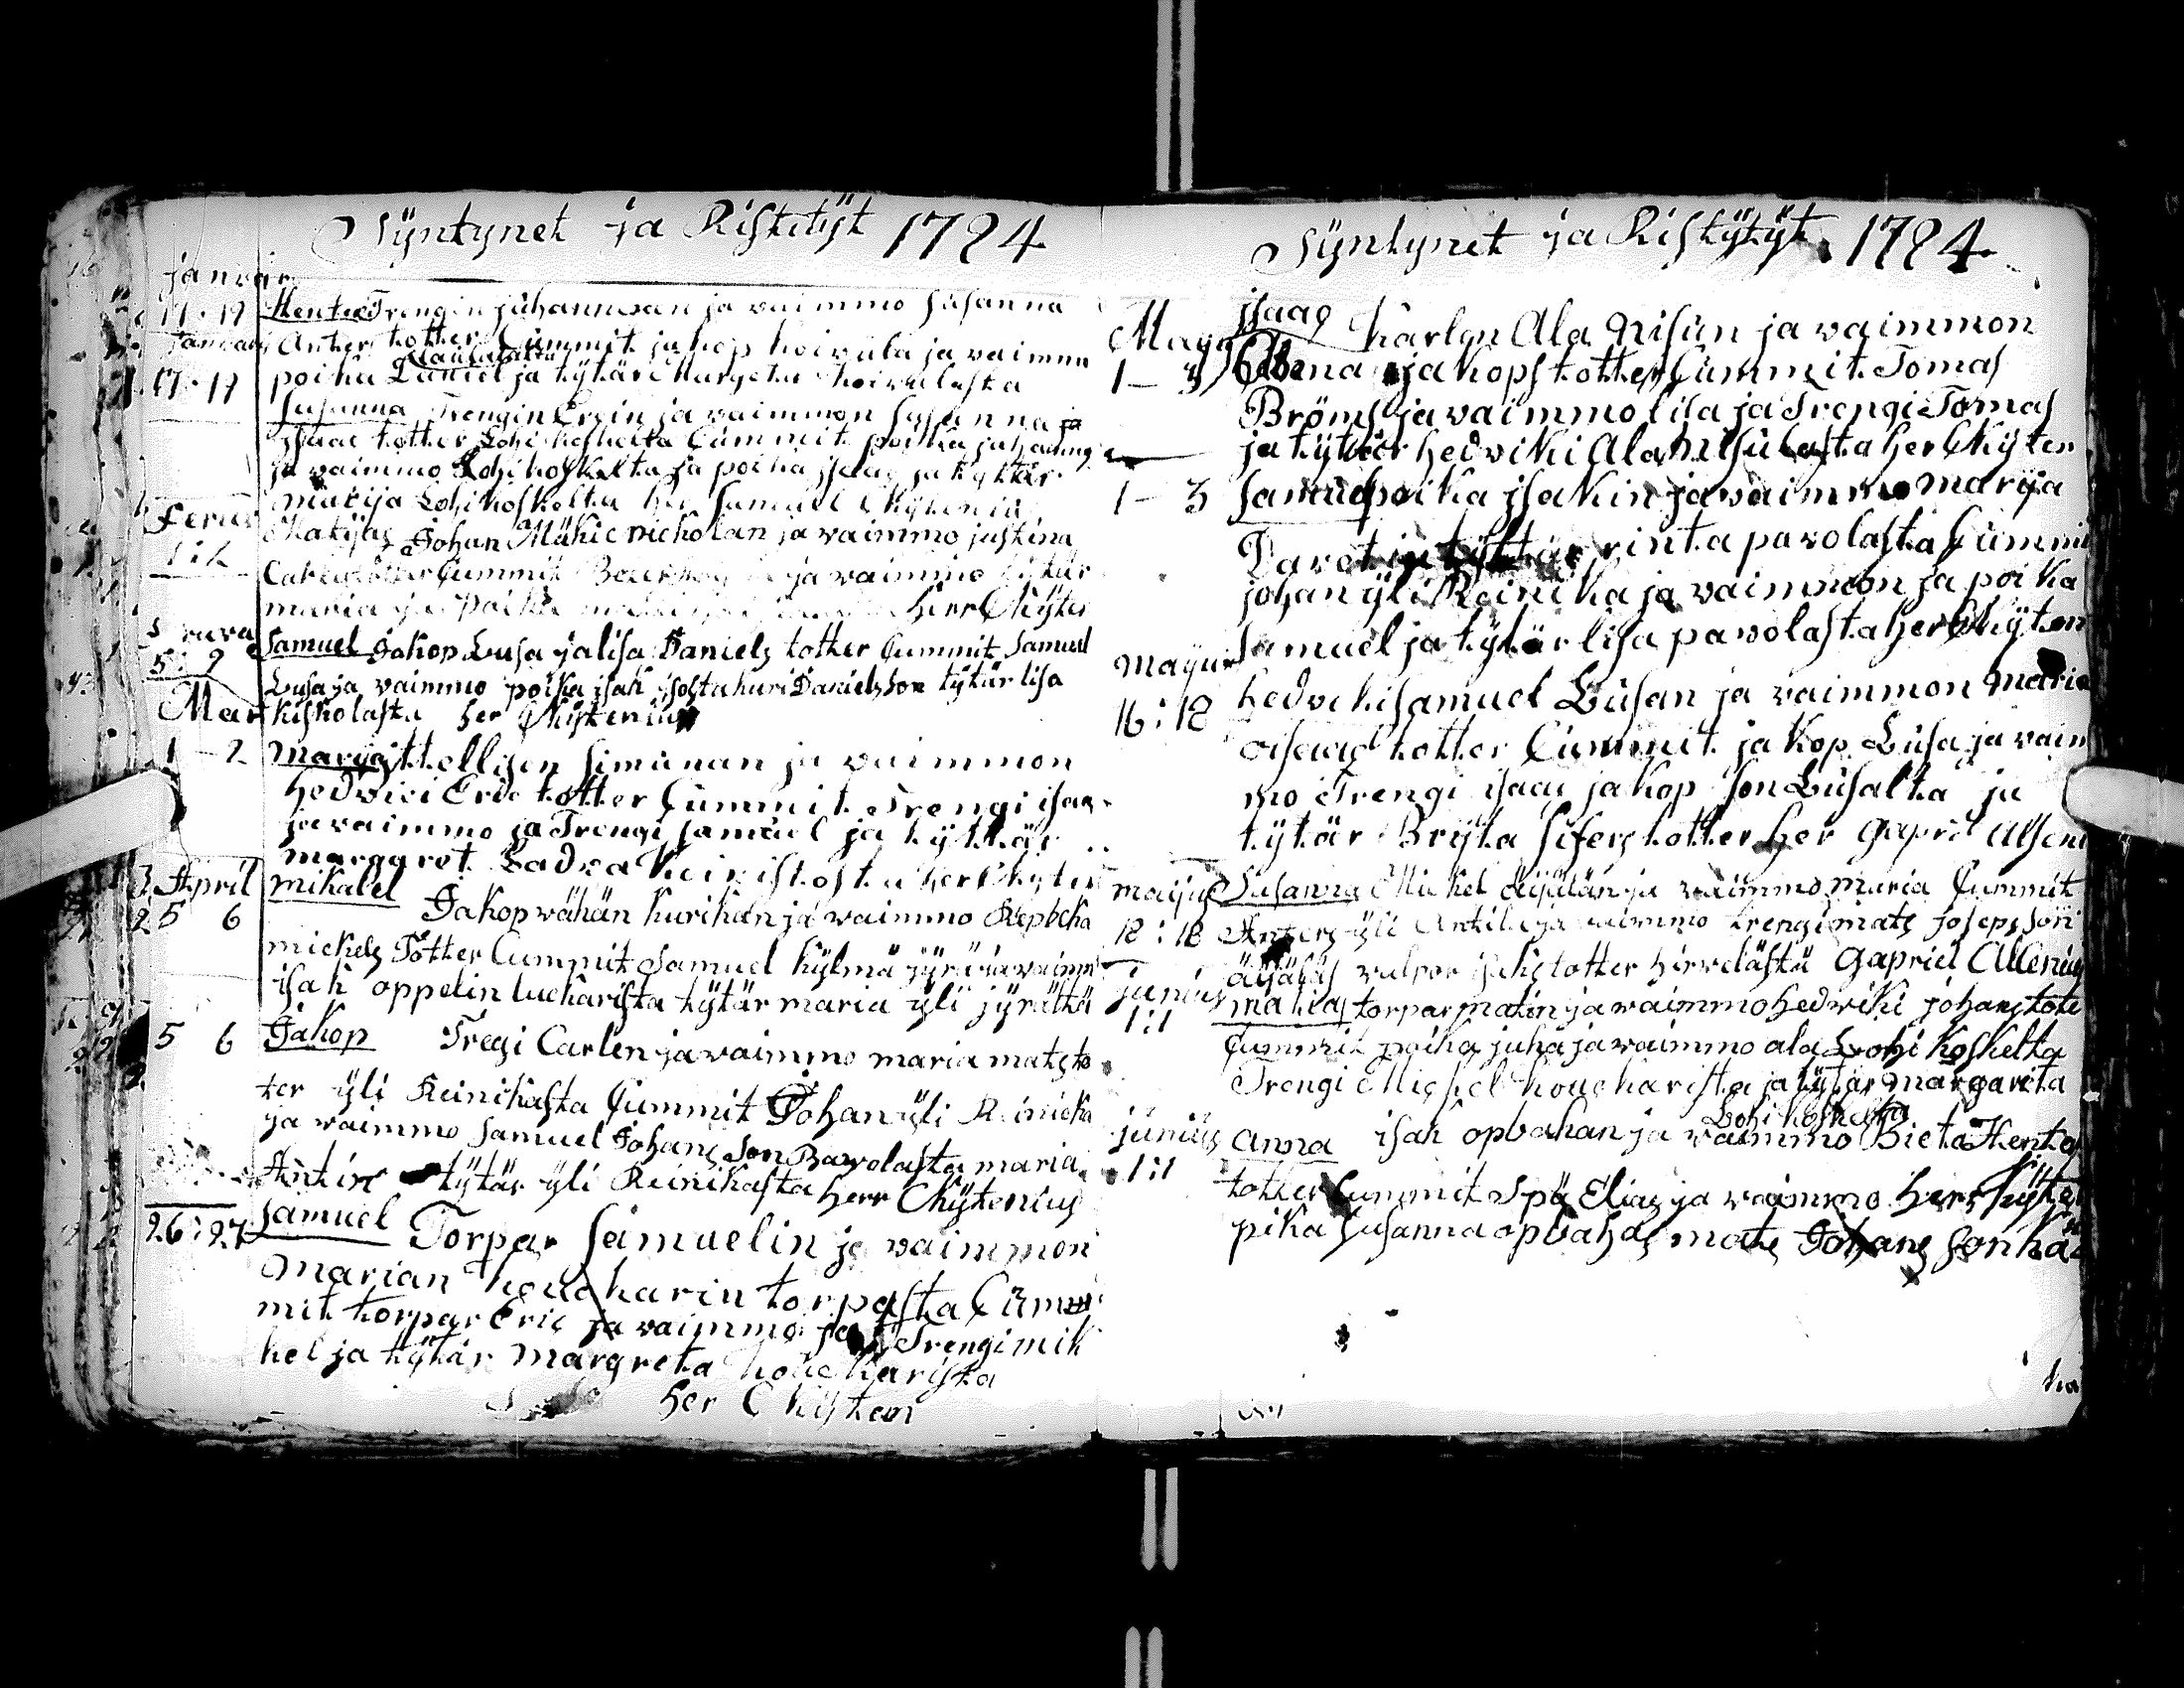 Syntynet ja Ristityt 1784
januar
17 · 19 Hentric Trengin juhannesan ja vaimmo Susanna
januari Anters totter Cummit jakop koivula ja vaimmo
17 · 19 poika Daniel ja tytär Margeta koivulasta
Susanna Trengin Ergin ja vaimmon Susanna ja
Isaac totter Lohikoskelta Cummit poika juhanns
ja vaimmo Lohikoskelta ja poika isaag ja tyttär
marija Lohikoskelta her Samuel Chytenius
Matijas Johan Mäkic nicholan ja vaimmo justina
Cummit ja vaimmo tytär
maria ja poika herr Chyten
5 : 9 Samuel Jakop Lusa ja lisa Daniels totter Cummit Samuel
Lusa ja vaimmo poika isak isostakuri Danielsson tytär lisa
Mar kiskolasta her Chytenius
1 - 2 marija ttelligen Simunan ja vaimmon
hedvici Eric totter Cummit Trengi isaa
ja vaimmo ja Trengi Samuel ja tyttär
marggret Ladvakeinistosta her Chyten
April mikalel Jakop vähän kurikan ja vaimmo Repbeka
5 6
mickels Totter Cummit Samuel kylmä jyrä ja vaimm
isak oppelin luckarista tytär maria yli jyrältä
5 6 Jakop Tregi Carlen ja vaimmo maria mats to
ter yli Reinikasta Cummit Johan yli Reinicka
ja vaimmo Samuel Johans Son Bavolasta maria
Antin tytär yli Reinikasta herr Chytenius
26 : 27 Samuel Torpar Samuelin ja vaimmon
Marian houcharin torpasta Cum
mit torpar Eric ja vaimmo ja Trengi mik
kel ja tytär Margreta houckarista
her Chyten
Syntynet ja Ristytyt 1784
isaag Karlen Ala Nisun ja vaimmon
1 - 3 Elena jakops totter Cummit Tomas
Bröms ja vaimmo lisa ja Trengi Tomas
ja tytär hedviki Ala nisulasta her Chyten
1 - 3 Samuel poika isakin ja vaimmo marija
Tavetin tytär rintapavolasta Cummi
johan yli Reinika ja vaimmon ja poika
Samuel ja tytär lisa pavolasta her Chyten
Mayus
16 : 18 hedvki samuel Lusan ja vaimmon Maria
totter Cummit jakop Lusa ja vaim
mo Trengi isaag jakop Son Lusalta ja
tytär Bryta Sifers totter her Gapriel
mayus Susanna Mickel äijälän ja vaimmo maria Cummit
18 : 18 Anters yli Antila ja vaimmo trengi mats josepsson
äijäläs totter hirvelästä Gapriel Allenius
junius
1 : 1 matias torpar matin ja vaimmo hedviki johans tote
Cummit poika juha ja vaimmo ala Lohikoskelta
Trengi Michel houckarista ja tytär margareta
Lohikoskelta
junius
1 : 1 anna isak opvahan ja vaimmo Bieta Hent
totter Cummit Spö Elias ja vaimmo herr Chyte
pika Susanna opvahas mats Johans Son